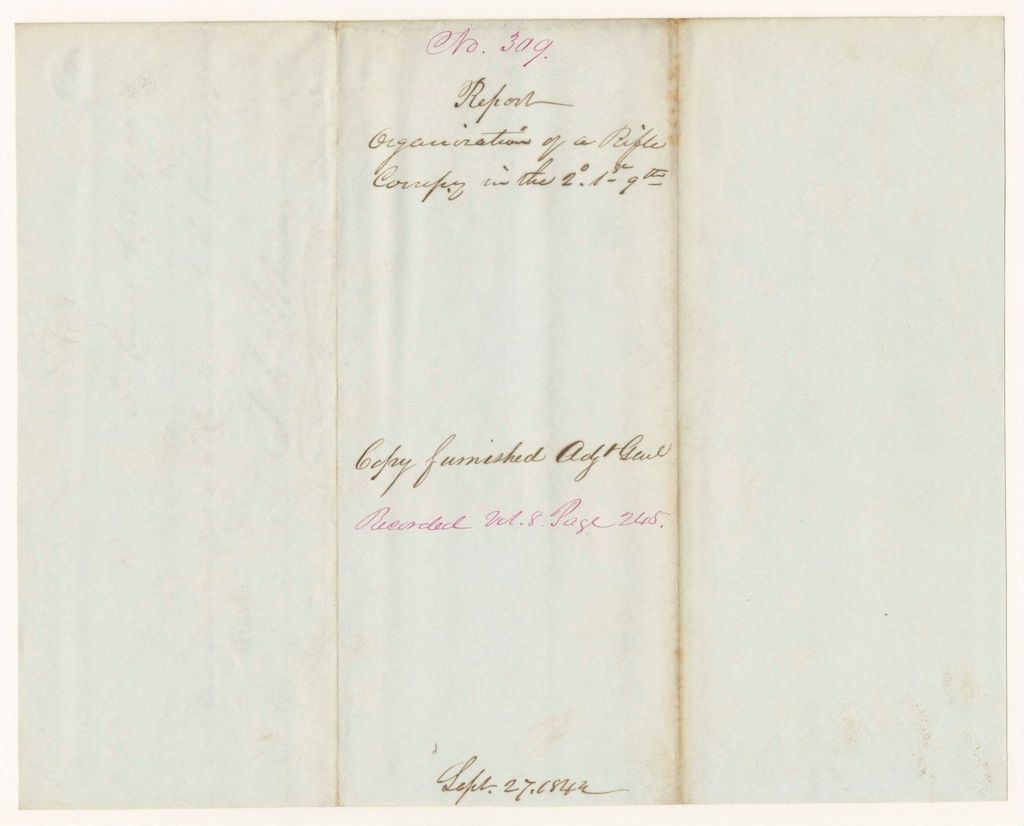 No. 309.
Report
Organization of a Rifle
Compy in the 2d. 1st 9th
Copy furnished Adjt Genl
Recorded Vol. 8. Page 245.
Sept. 27. 1842